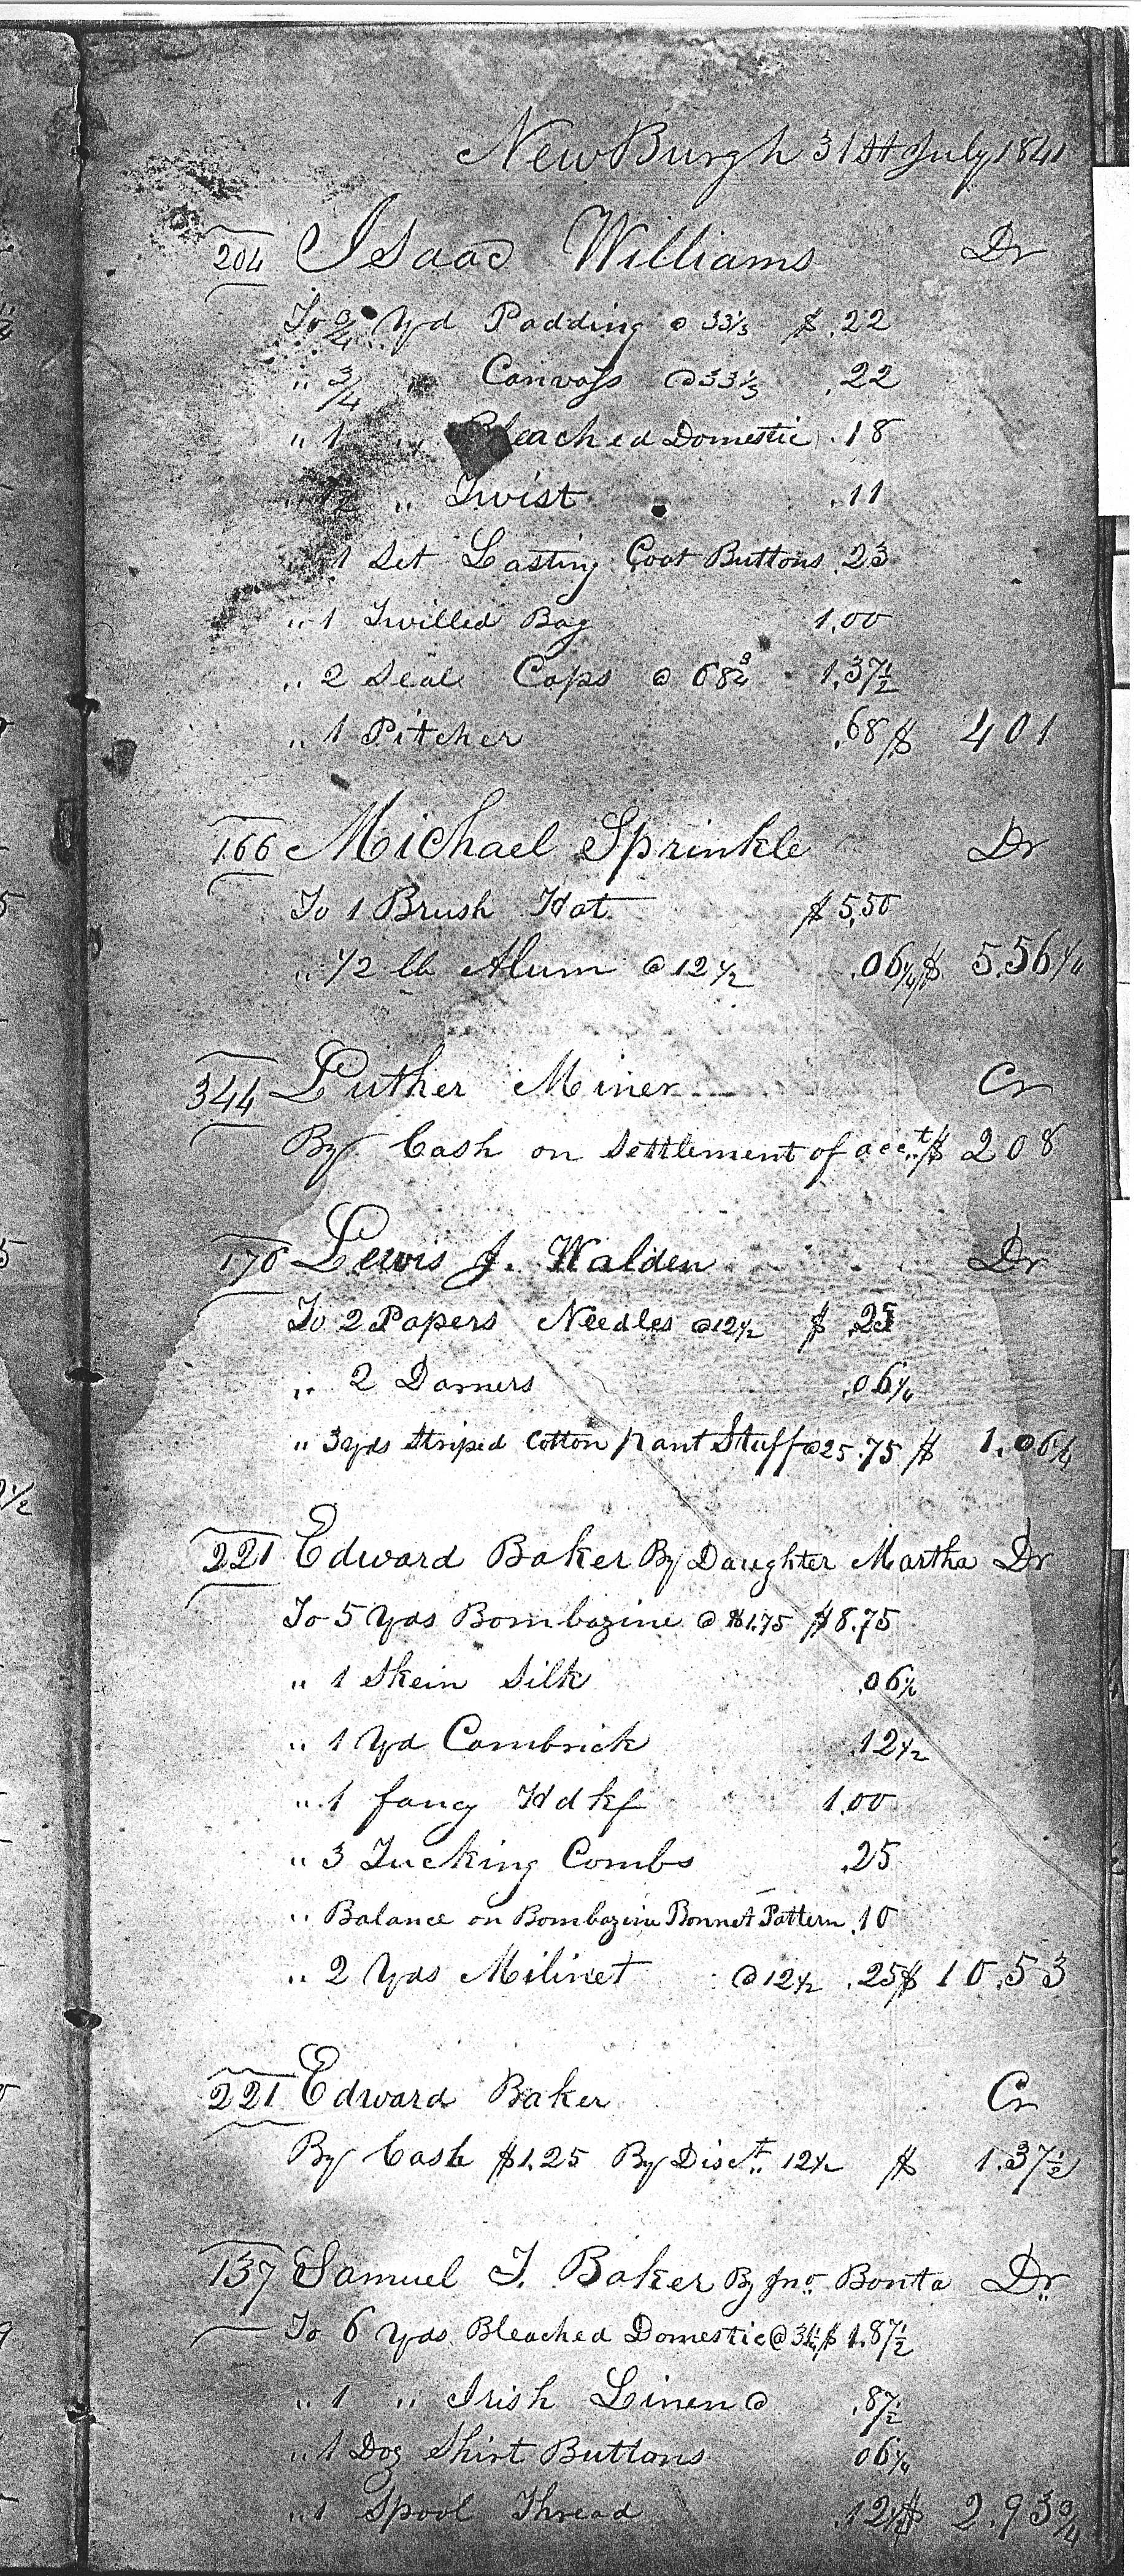 NewBurgh 31st July 1841
204 Isaac Williams Dr
To 3/4 Yd Padding @ 33 1/3 $ .22
" 3/4 " Canvass @ 33 1/3 .22
" 1 " Bleached Domestic .18
" 1/2 " Twist .11
" 1 Set Lasting Coat Buttons .23
" 1 Twilled Bag 1.00
" 2 Seal Caps @ 68 3/4 1.37 1/2
" 1 Pitcher .68 $ 4 01
166 Michael Sprinkle Dr
To 1 Brush Hat $ 5.50
" 1/2 lb Alum @ 12 1/2 .06 1/4 $ 5.56 1/4
344 Luther Miner Cr
By Cash on Settlement of acct $ 2 08
170 Lewis J. Walden Dr
To 2 Papers Needles @ 12 1/2 $ .25
" 2 Darners .06 1/4
" 3 yds Striped Cotton pant Stuff @ 25 .75 $ 1.06 1/4
221 Edward Baker By Daughter Martha Dr
To 5 Yds Bombazine @ $1.75 $8.75
" 1 Skein Silk .06 1/4
" 1 Yd Cambrick .12 1/2
" 1 fancy Hdkf 1.00
" 3 Tucking Combs .25
" Balance on Bombazine Bonnet Pattern .10
" 2 Yds Milinet @ 12 1/2 .25 $ 10.53
221 Edward Baker Cr
By Cash $1.25 By Disct 12 1/2 $ 1.37 1/2
137 Samuel T. Baker By Jno Bonta Dr
To 6 Yds Bleached Domestic @ 31 1/4 $ 1.87 1/2
" 1 " Irish Linen @ .87 1/2
" 1 Doz Shirt Buttons 06 1/4
" 1 Spool Thread .12 1/2 $ 2.93 3/4